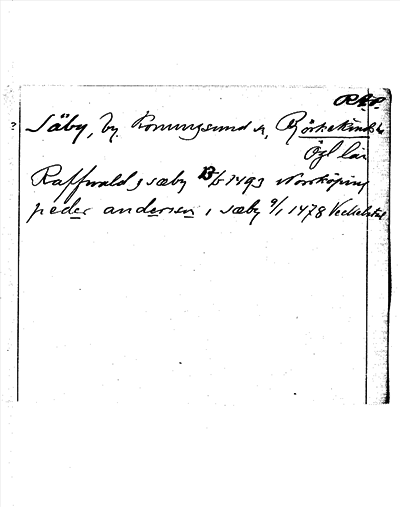 RAP.
? Säby, by, Konungsund s, Björkekinds h
Ögl län
Raffwald j sæby 13/5 1493 Norrköping
peder andersen i sæby 9/1 1478